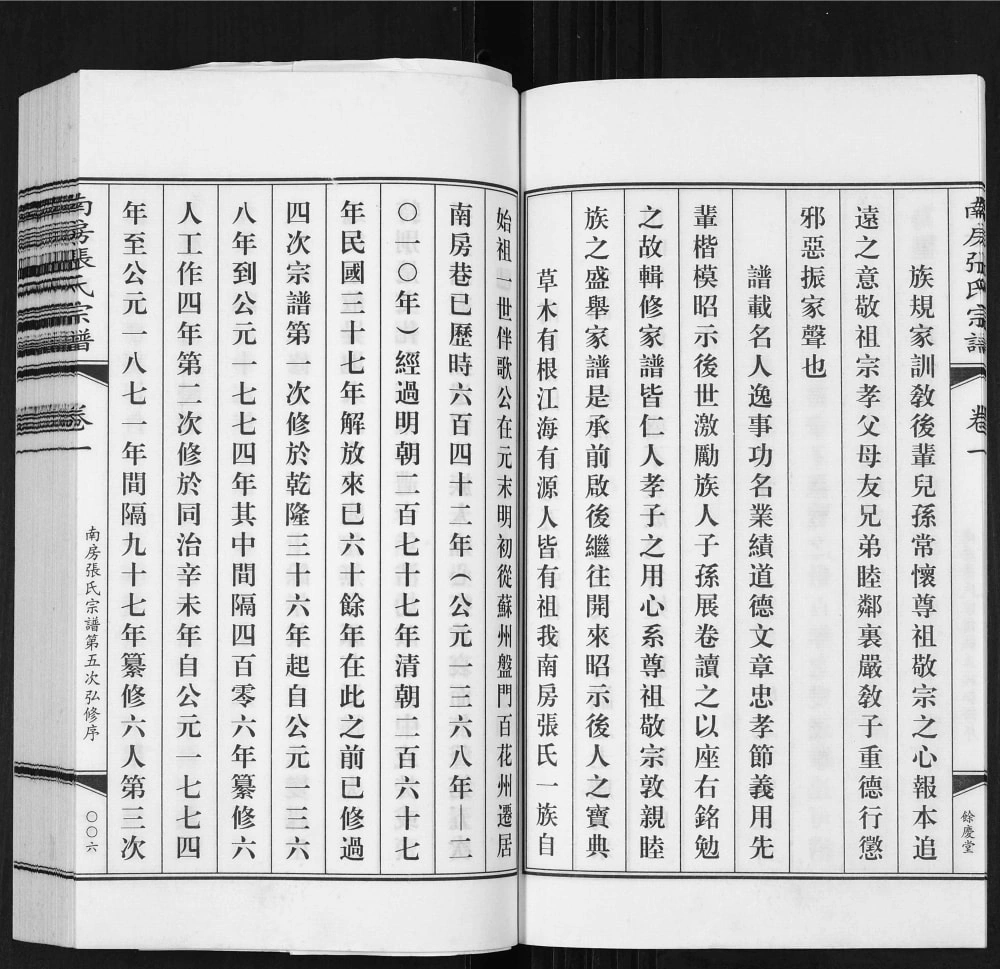 南房張氏宗譜
卷一
餘慶堂
族規家訓敎後輩兒孫常懷尊祖敬宗之心報本追
遠之意敬祖宗孝父母友兄弟睦鄰裏嚴敎子重德行懲
邪惡振家聲也
譜載名人逸事功名業績道德文章忠孝節義用先
輩楷模昭示後世激勵族人子孫展卷讀之以座右銘勉
之故輯修家譜皆仁人孝子之用心系尊祖敬宗敦親睦
族之盛舉家譜是承前啟後繼往開來昭示後人之寶典
草木有根江海有源人皆有祖我南房張氏一族自
始祖一世伴歌公在元末明初從蘇州盤門百花州遷居
南房巷已歷時六百四十二年（公元一三六八年—二
〇一〇年）經過明朝二百七十七年清朝二百六十七
年民國三十七年解放來已六十餘年在此之前已修過
四次宗譜第一次修於乾隆三十六年起自公元一三六
八年到公元一七七四年其中間隔四百零六年纂修六
人工作四年第二次修於同治辛未年自公元一七七四
年至公元一八七一年間隔九十七年纂修六人第三次
南房張氏宗譜
卷一
南房張氏宗譜第五次弘修序
〇〇六